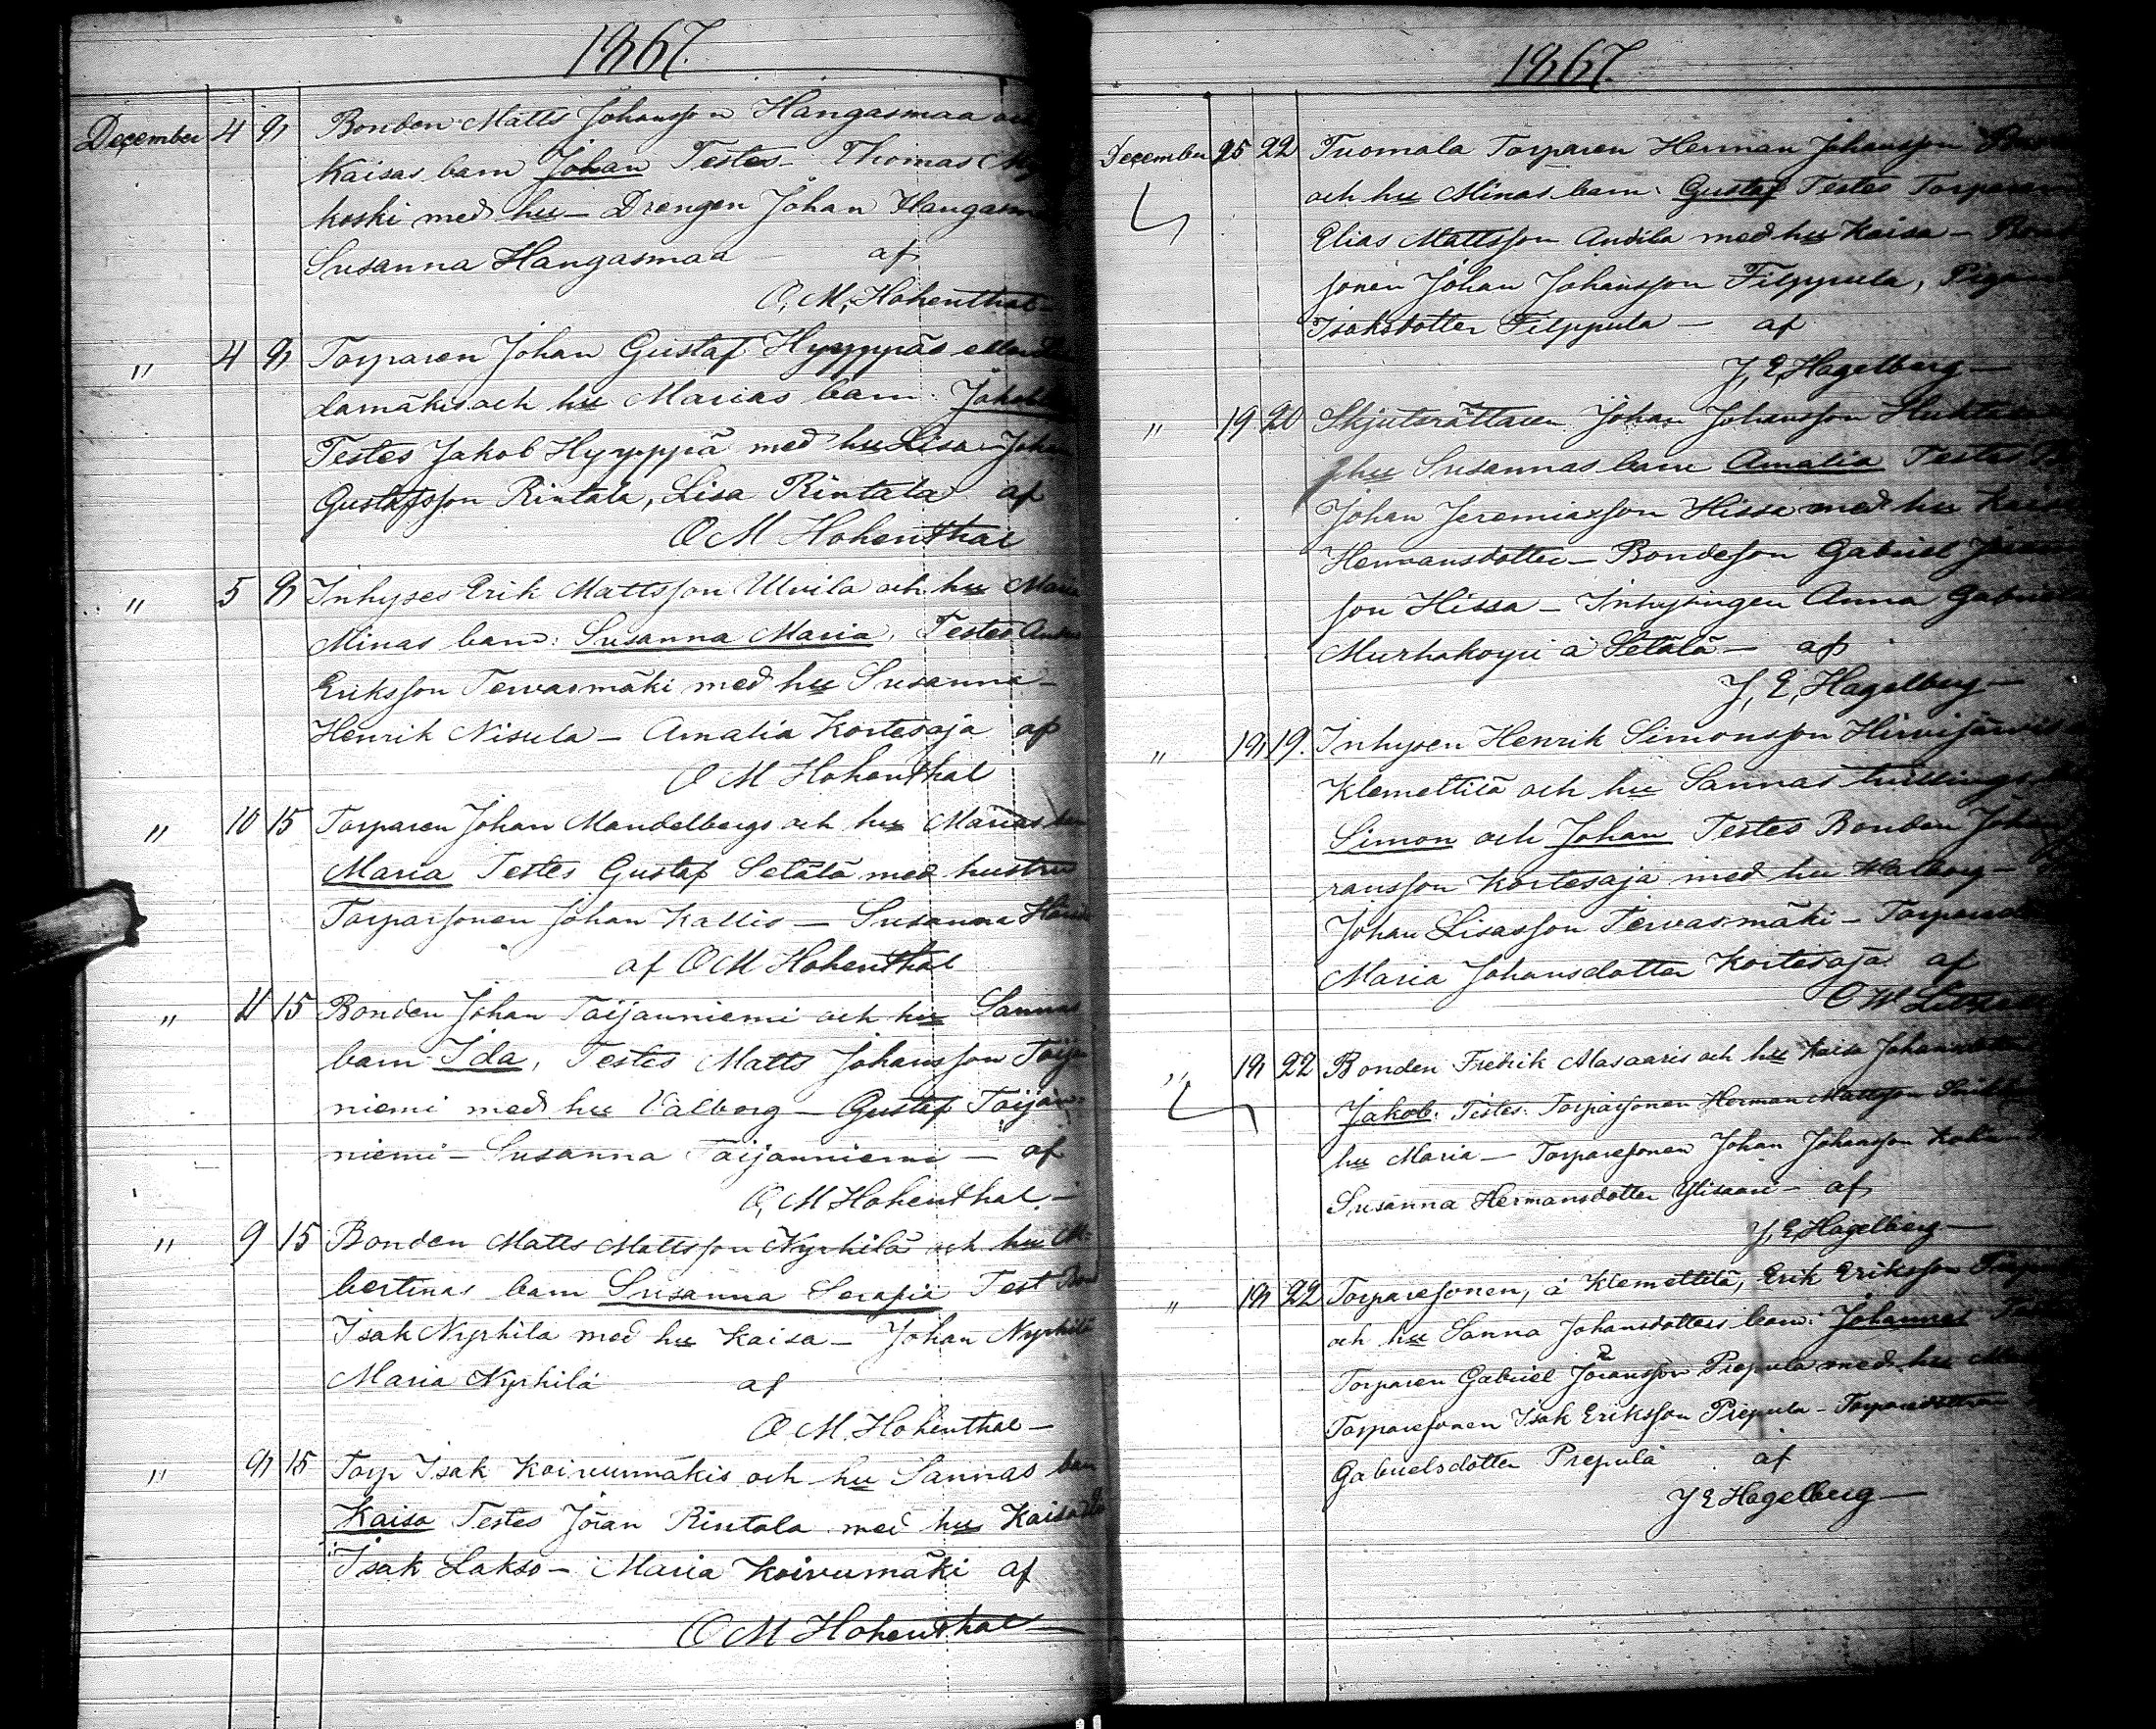 1867.
December 4 9 Bonden Matts Johansson Hangasmaa
Kaisas barn Johan Testes - Thomas
koski med hu - Drengen Johan
Susanna Hangasmaa - af
O, M, Hohenthal -
" 4 9 Torparen Johan Gustaf Hyyppäs
damäkis och hu Marias barn:
Testes Jakob Hyyppä med hu Lisa - Johan
Gustafsson Rintala, Lisa Rintala af
O M Hohenthal
" 5 9 Inhyses Erik Mattsson Ulvila och hu Maria
Minas barn: Susanna Maria, Testes
Eriksson Tervasmäki med hu Susanna -
Henrik Nisula - Amalia Kortesoja af
O M Hohenthal
" 10 15 Torparen Johan Mandelbergs och hu Marias
Maria Testes Gustaf Setälä med hustru
Torparsonen Johan Kallio - Susanna
af O M Hohenthal
" 11 15 Bonden Johan Taijanniemi och hu Sannas
barn Ida, Testes Matts Johansson
niemi med hu Valborg - Gustaf Taijan-
niemi - Susanna Taijanniemi - af
O, M Hohenthal. -
" 9 15 Bonden Matts Mattsson Nyrhilä och hu
bertinas barn Susanna Serafia Test
Isak Nyrhila med hu Kaisa - Johan Nyrhilä
Maria Nyrhilä af
O. M. Hohenthal -
" 9 15 Torp Isak Koivumäkis och hu Sannas
Kaisa Testes Jöran Rintala med hu
Isak Lakso - Maria Koivumäki af
O M Hohenthal -
1867.
December 25 22 Tuomala Torparen Herman Johansson
och hu Minas barn: Gustaf Testes Torparen
Elias Mattsson Andila med hu Kaisa -
sonen Johan Johansson Filppula,
Isaksdotter Filppula - af
J, E, Hagelberg -
" 19 20 Skjutsrättaren Johan Johansson
hu Susannas barn Amalia Testes
Johan Jeremiasson Hissa med hu
Hermansdotter - Bondeson Gabriel
son Hissa - Inhysingen Anna
Murhakoyri å Setälä - af
J, E, Hagelberg -
" 19 19. Inhysen Henrik Simonsson Hirvijärvis
Klemettilä och hu Sannas
Simon och Johan Testes Bonden Johan
ransson Kortesoja med hu Walborg -
Johan Lisasson Tervasmäki -
Maria Johansdotter Kortesoja af
O W
" 19 22 Bonden Fredrik Alasaaris och hu Kaisa
Jakob: Testes: Torparsonen Herman Mattsson
hu Maria - Torparesonen Johan Johansson
Susanna Hermansdotter Ylisaari - af
J, E, Hagelberg -
" 19 22 Torparesonen, å Klemettilä, Erik Eriksson
och hu Sanna Johansdotters barn: Johannes
Torparen Gabriel Jöransson Prepula med hu
Torparesonen Isak Eriksson Prepula -
Gabrielsdotter Prepula af
J E Hagelberg -